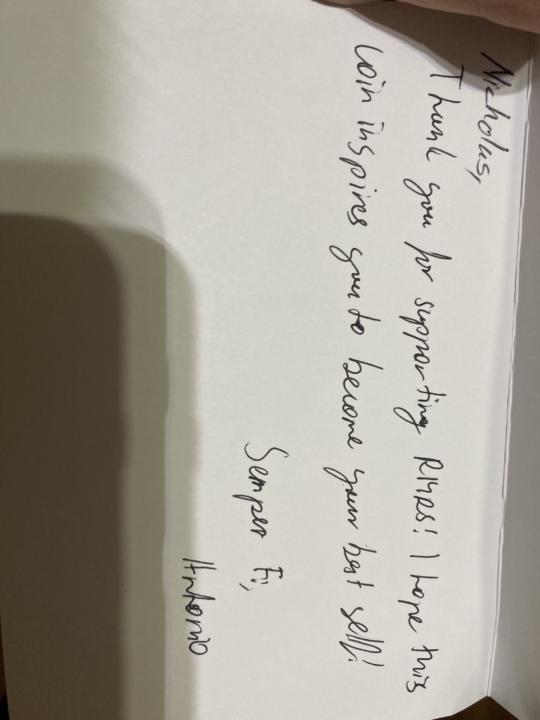 Nicholas,
Thank you for supporting RMRS! I hope this
coin inspires you to become your best self!
Semper Fi,
Antonio